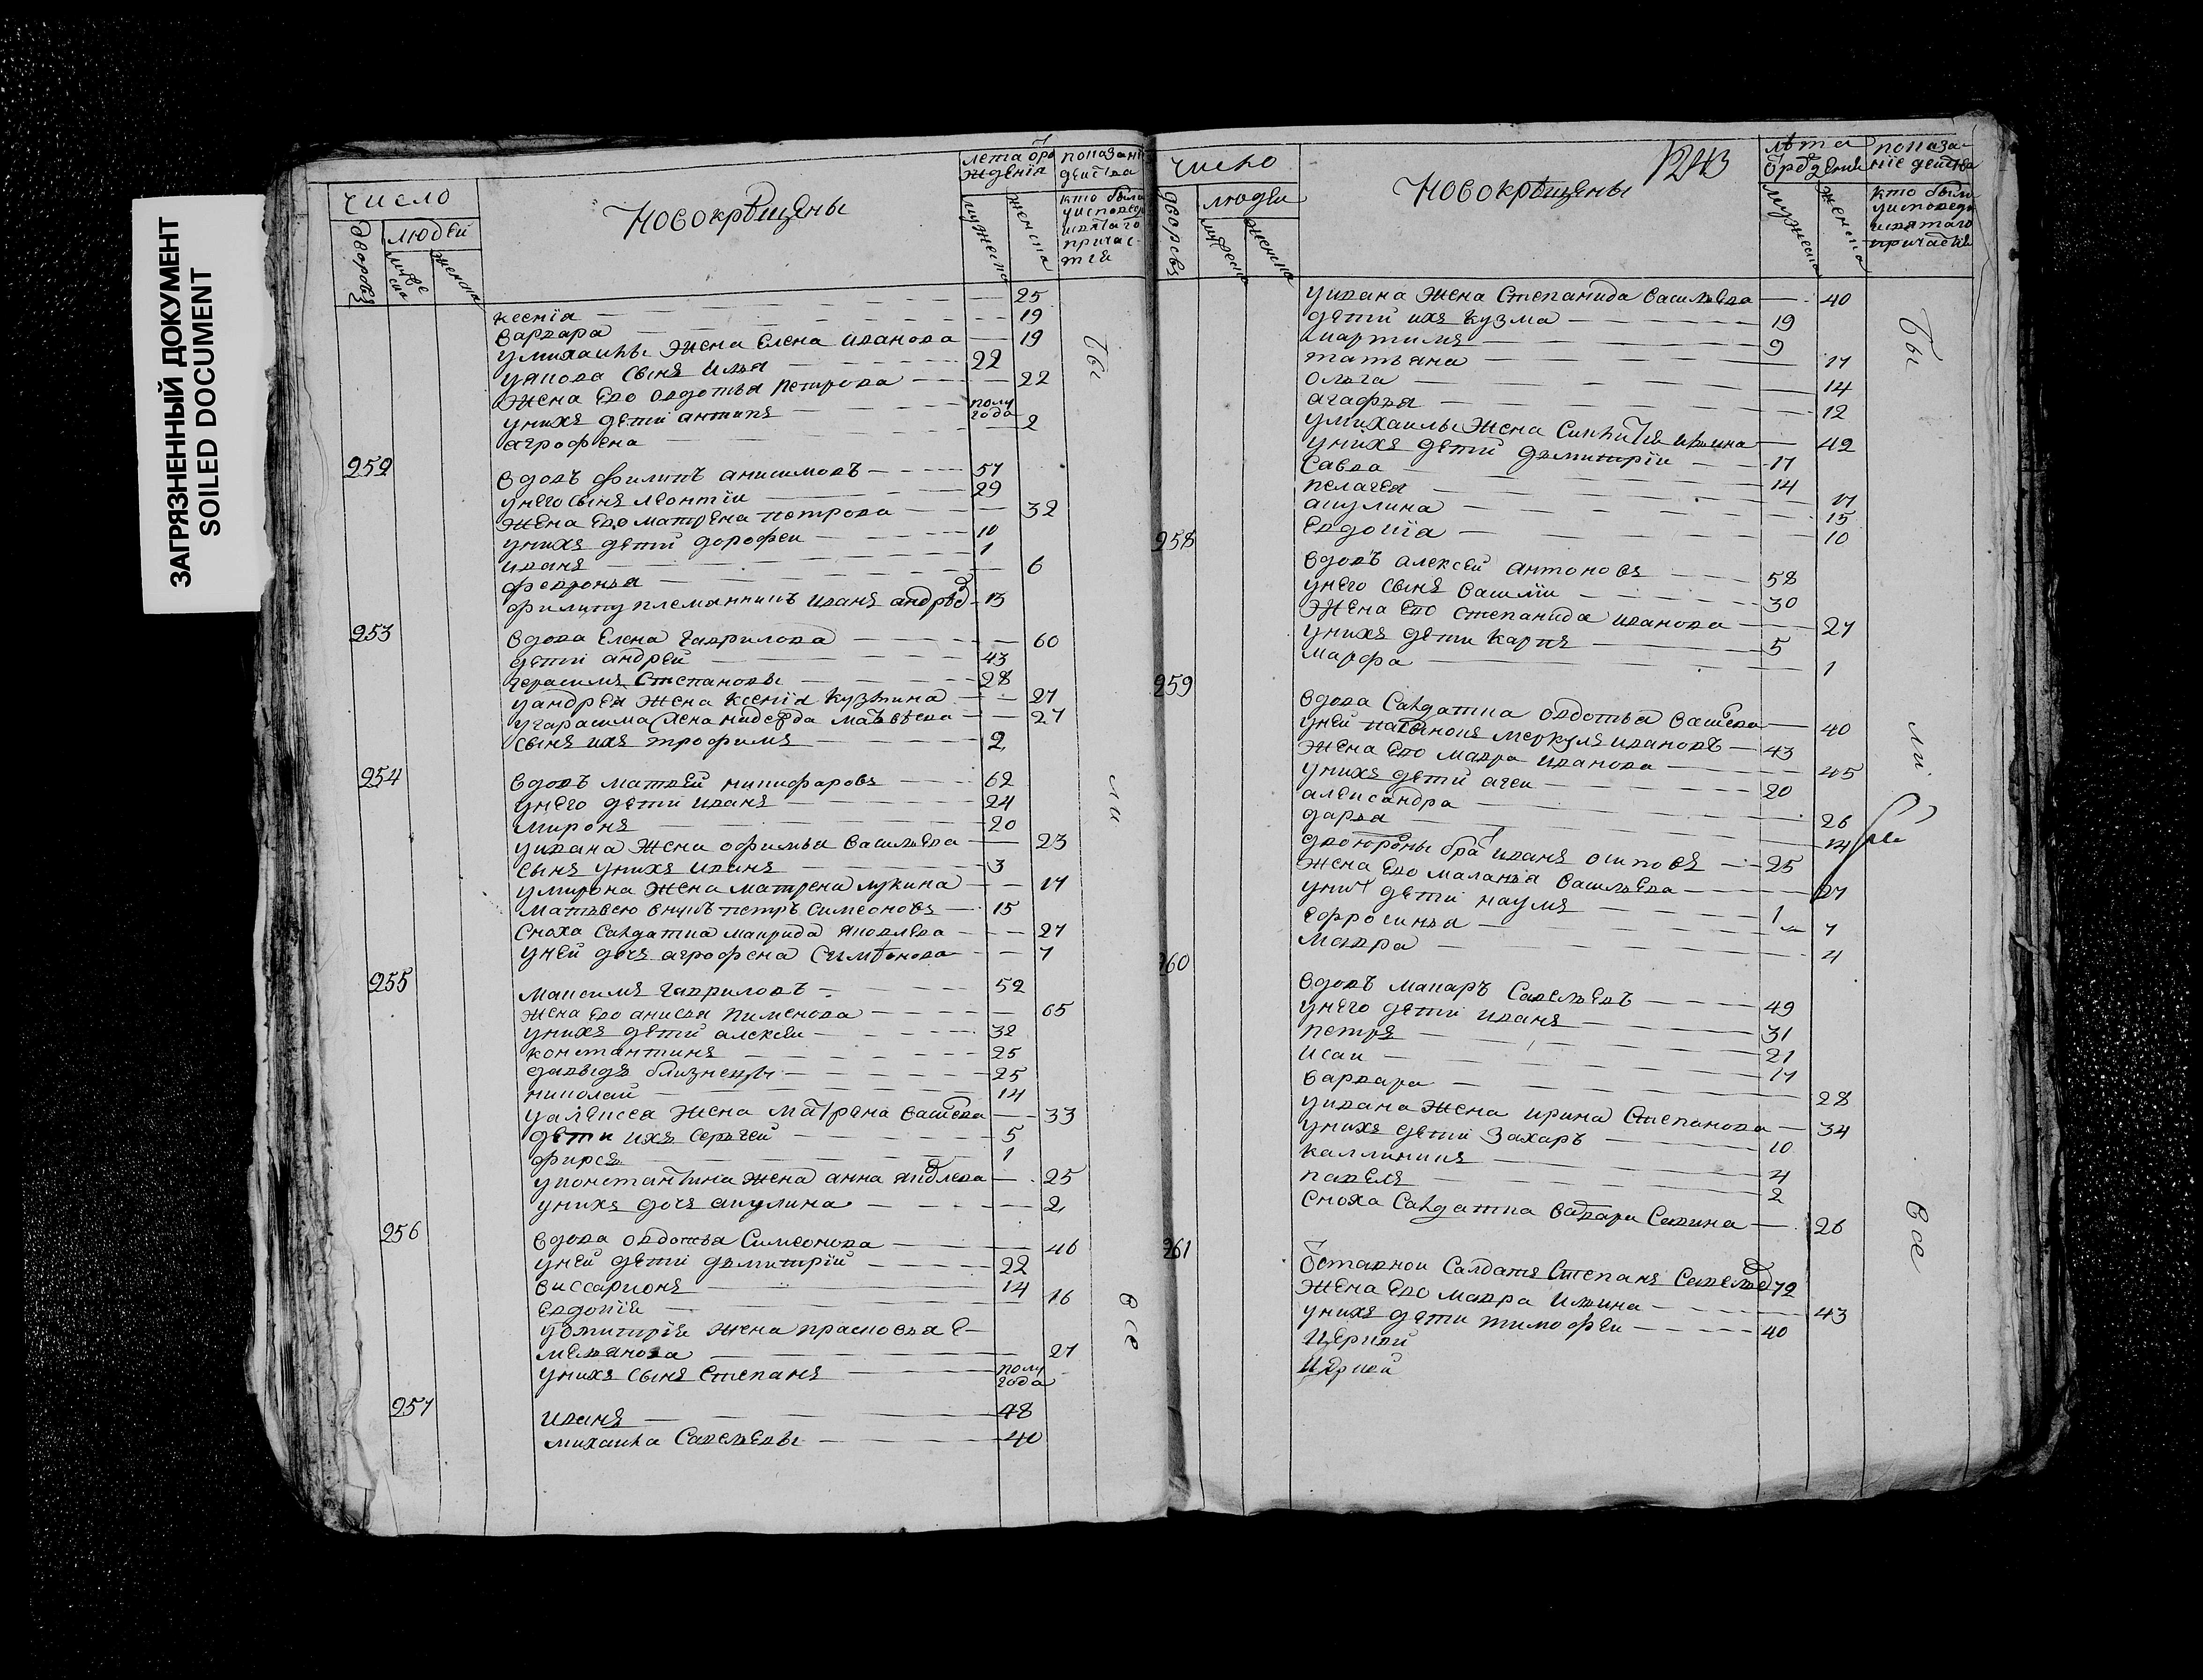 ЗАГРЯЗНЕННЫЙ ДОКУМЕНТ
SOILED DOCUMENT
число
дворовъ
людей
мужеска
женска
Новокрѣщены
лета оро
жденїя
мужеска
женска
показанї
деиства
кто были
уисповеди
исвятаго
причас
тїя
ксенїя — 25
варвара — 19
умихаилы жена Елена иванова — 19
уякова сынъ илья — 22
жена Ево овдотья петрова — 22
унихъ дети антипъ — полу года
агрофена — 2
252 вдовъ филипъ анисимовъ — 57
унего сынъ леонтїи — 29
жена Ево матрена петрова — 32
унихъ дети дорофеи — 10
иванъ — 1
февронья — 6
филипу племянникъ иванъ андрѣе — 13
253 вдова Елена гаврилова — 60
дети андреи — 43
герасимъ Степановы — 28
уандрея жена ксенїя кузмина — 27
угарасима жена надежда матвѣева — 27
сынъ ихъ трофимъ — 2
254 вдовъ матвей никифаровъ — 62
унего дети иванъ — 24
миронъ — 20
уивана жена офимья васильева — 23
сынъ унихъ иванъ — 3
умирона жена матрена лукина — 17
матвею внукъ петръ симеоновъ — 15
сноха салдатка маврида яковлева — 27
уней дочь агрофена Симеонова — 7
255 максимъ гавриловъ — 52
жена Ево анисья пименова — 65
унихъ дети алексеи — 32
константинъ — 25
давыдъ близнецы — 25
николай — 14
уалексея жена матрена васильева — 33
дети ихъ сергей — 5
фирсъ — 1
уконстантина жена анна яковлева — 25
унихъ дочь акулина — 2
256 вдова овдотья Симеонова — 46
уней дети димитрїй — 22
виссарионъ — 14
Евдокїя — 16
удмитрїя жена прасковья е—
мельянова — 27
унихъ сынъ степанъ — полу года
257 иванъ — 48
михаила Савельевы — 40
Бы
ли
все
число
дворовъ
людеи
мужеска
женска
Новокрѣщены
1243
лѣта
женска
показа
нїе деиства
кто были
уисповеди
исвятаго
причастїя
уивана жена Степанида васильева — 40
дети ихъ кузма — 19
мартимъ — 9
татьяна — 17
ольга — 14
агафья — 12
умихаилы жена — 42
унихъ дети димитрїи — 17
Савва — 14
пелагея — 17
акулина — 15
Евдокїа — 10
258 вдовъ алексей антоновъ — 58
унего сынъ василїи — 30
жена Ево степанида иванова — 27
унихъ дети карпъ — 5
марфа — 1
259 вдова Салдатка овдотья васильева — 40
уней меркулъ ивановъ — 43
жена Ево мавра иванова — 45
унихъ дети агеи — 20
александра — 26
дарья — 14
двоюроны братъ иванъ осиповъ — 25
жена Ево маланья васильева — 27
унихъ дети наумъ — 1
Ефросинья — 7
мавра — 4
260 вдовъ макаръ Савельевъ — 49
унего дети иванъ — 31
петръ — 21
исаи — 17
варвара — 28
уивана жена ирина Степанова — 34
унихъ дети Захаръ — 10
каллиникъ — 4
павелъ — 2
сноха Салдатка варвара Савина — 26
261 Отставнои Салдатъ Степанъ Савельев 72
жена Ево мавра ильина — 43
унихъ дети тимофеи — 40
Бы
ли
все